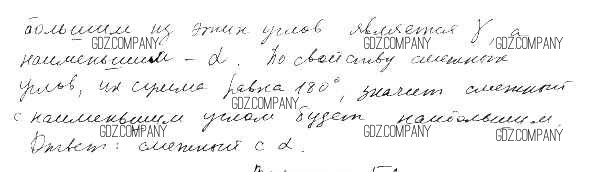 большим из этих углов является γ, а
наименьшим – α. По свойству смежных
углов, их сумма равна 180°, значит смежный
с наименьшим углом будет наибольшим.
Ответ: смежный с α.
GDZ.COMPANY GDZ.COMPANY
GDZ.COMPANY GDZ.COMPANY
GDZ.COMPANY
GDZ.COMPANY GDZ.COMPANY GDZ.COMPANY